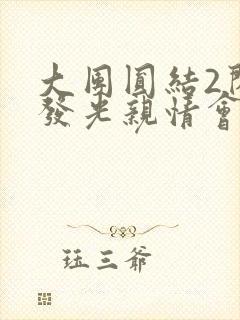 大團圓結2
發光親情會
珏三爺